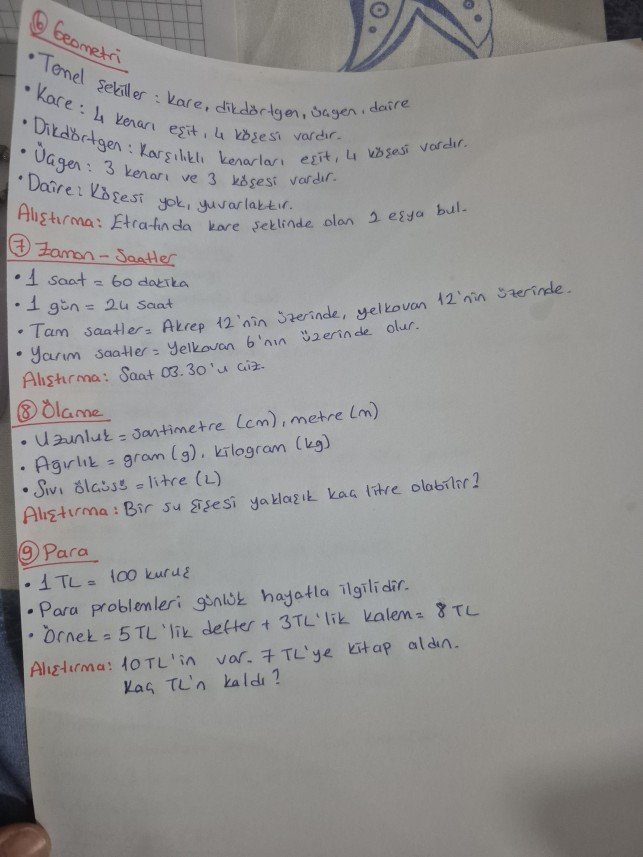 ⑥ Geometri
• Temel şekiller: kare, dikdörtgen, üçgen, daire
• Kare: 4 kenarı eşit, 4 köşesi vardır.
• Dikdörtgen: Karşılıklı kenarları eşit, 4 köşesi vardır.
• Üçgen: 3 kenarı ve 3 köşesi vardır.
• Daire: Köşesi yok, yuvarlaktır.
Alıştırma: Etrafında kare şeklinde olan 2 eşya bul.
⑦ Zaman - Saatler
• 1 saat = 60 dakika
• 1 gün = 24 saat
• Tam saatler = Akrep 12'nin üzerinde, yelkovan 12'nin üzerinde.
• Yarım saatler = Yelkovan 6'nın üzerinde olur.
Alıştırma: Saat 03.30'u çiz.
⑧ Ölçme
• Uzunluk = santimetre (cm), metre (m)
• Ağırlık = gram (g), kilogram (kg)
• Sıvı ölçüsü = litre (L)
Alıştırma: Bir su şişesi yaklaşık kaç litre olabilir?
⑨ Para
• 1 TL = 100 kuruş
• Para problemleri günlük hayatla ilgilidir.
• Örnek = 5 TL'lik defter + 3TL'lik kalem = 8 TL
Alıştırma: 10 TL'in var. 7 TL'ye kitap aldın.
Kaç TL'n kaldı?